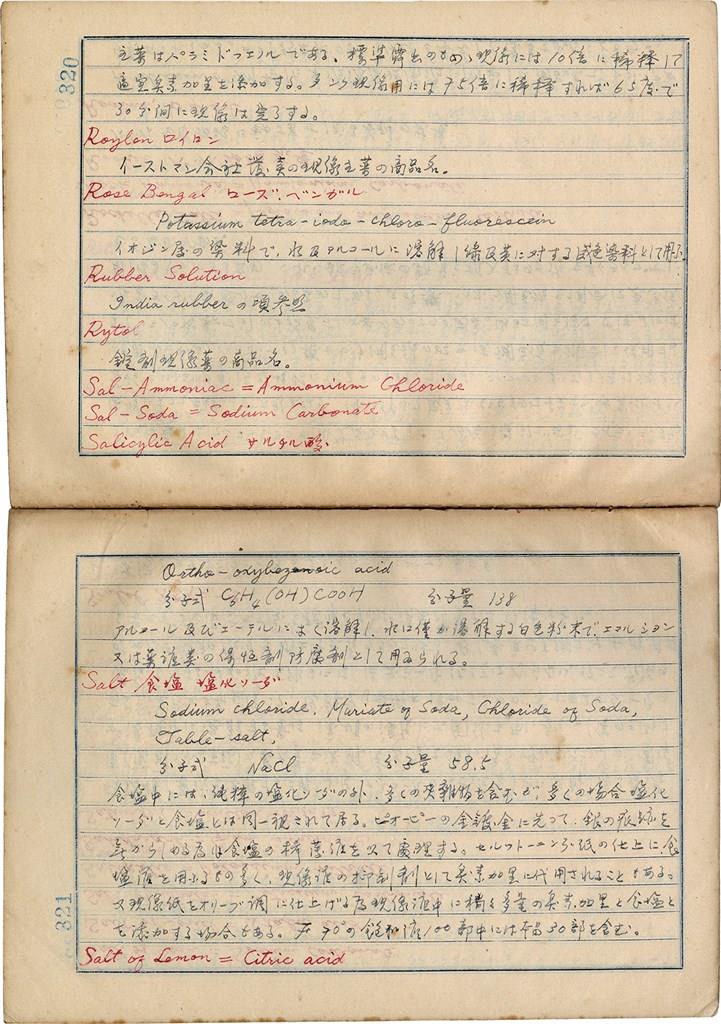 320
主薬はパラミドフェノルである。標準露出のもの、現像には10倍に稀釋して
適宜臭素加里を添加する。タンク現像用には75倍に稀釋すれば65度で
30分间に現像は完了する。
Roylon ロイロン
イーストマン会社發売の現像主薬の商品名。
Rose Bengal ローズ・ベンガル
Potassium tetra-iodo-chloro-fluorescein
イオジン属の染料で、水及アルコールに溶解し緑及黄に対する感色染料として用ふ
Rubber Solution
India rubber の項参照
Rytol
錠剤現像薬の商品名。
Sal-Ammoniac = Ammonium Chloride
Sal-Soda = Sodium Carbonate
Salicylic Acid サルチル酸
Ortho-oxybezonoic acid
分子式 C6H4(OH)COOH 分子量 138
アルコール及びエーテルによく溶解し、水に僅か溶解する白色粉末で、エマルション
又は薬液類の保恒剤防腐剤として用ゐられる。
Salt 食塩 塩化ソーダ
Sodium chloride. Muriate of Soda, Chloride of Soda,
Table-salt,
分子式 NaCl 分子量 58.5
食塩中には、純粋の塩化ソーダの外、多くの夾雑物を含むが、多くの場合塩化
ソーダと食塩とは同一視されて居る。ピオーピーの金鍍金に先って、銀の痕跡を
無からしめる為食塩の稀薄液を以て處理する。セルフトーニング紙の仕上に食
塩液を用ふるもの多く、現像液の抑制剤として臭素加里に代用されることもある。
又現像紙をオリーブ調に仕上げる為現像液中に稍々多量の臭素加里と食塩と
を添加する場合がある。70°の飽和液100部中には本品30部を含む。
321
Salt of Lemon = Citric acid